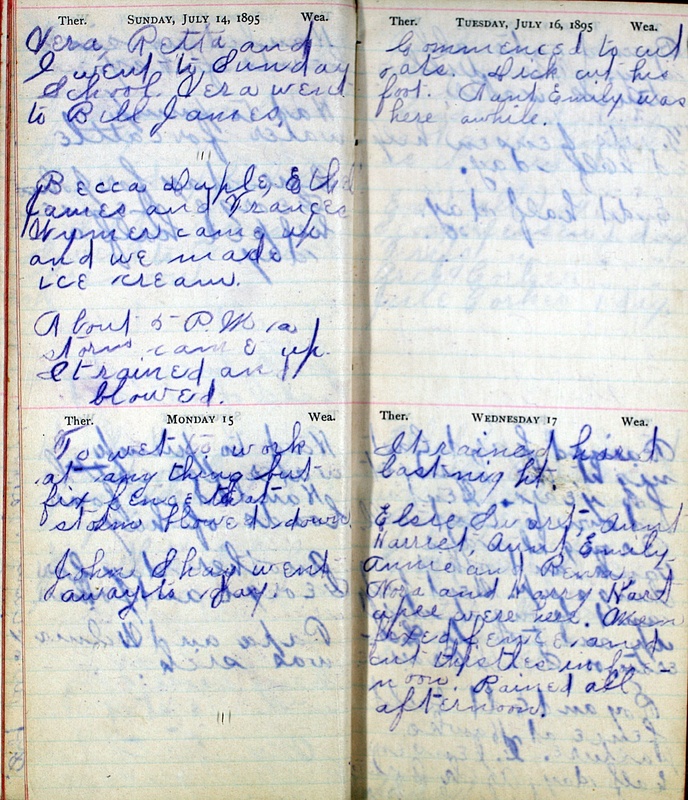 Ther. SUNDAY, JULY 14, 1895 Wea.
Vera Retta and
I went to Sunday
School Vera went
to Bill Janes.
Becca Duple Ethel
James and Frances
came up
and we made
ice cream.
About 5 P.M. a
storm came up.
It rained and
blowed.
Ther. MONDAY 15 Wea.
To wet to work
at any thing but
fix fence that
storm blowed down.
John Shay went
away to day.
Ther. TUESDAY, JULY 16, 1895 Wea.
Commenced to cut
oats. Dick cut his
foot. Aunt Emily was
here awhile.
Ther. WEDNESDAY 17 Wea.
It rained hard
last night.
Elsie Aunt
Harriet, Aunt Emily
Annie and
Nora and Harry
all were here. Men
fixed fence and
cut thistles in fore-
noon. Rained all
afternoon.